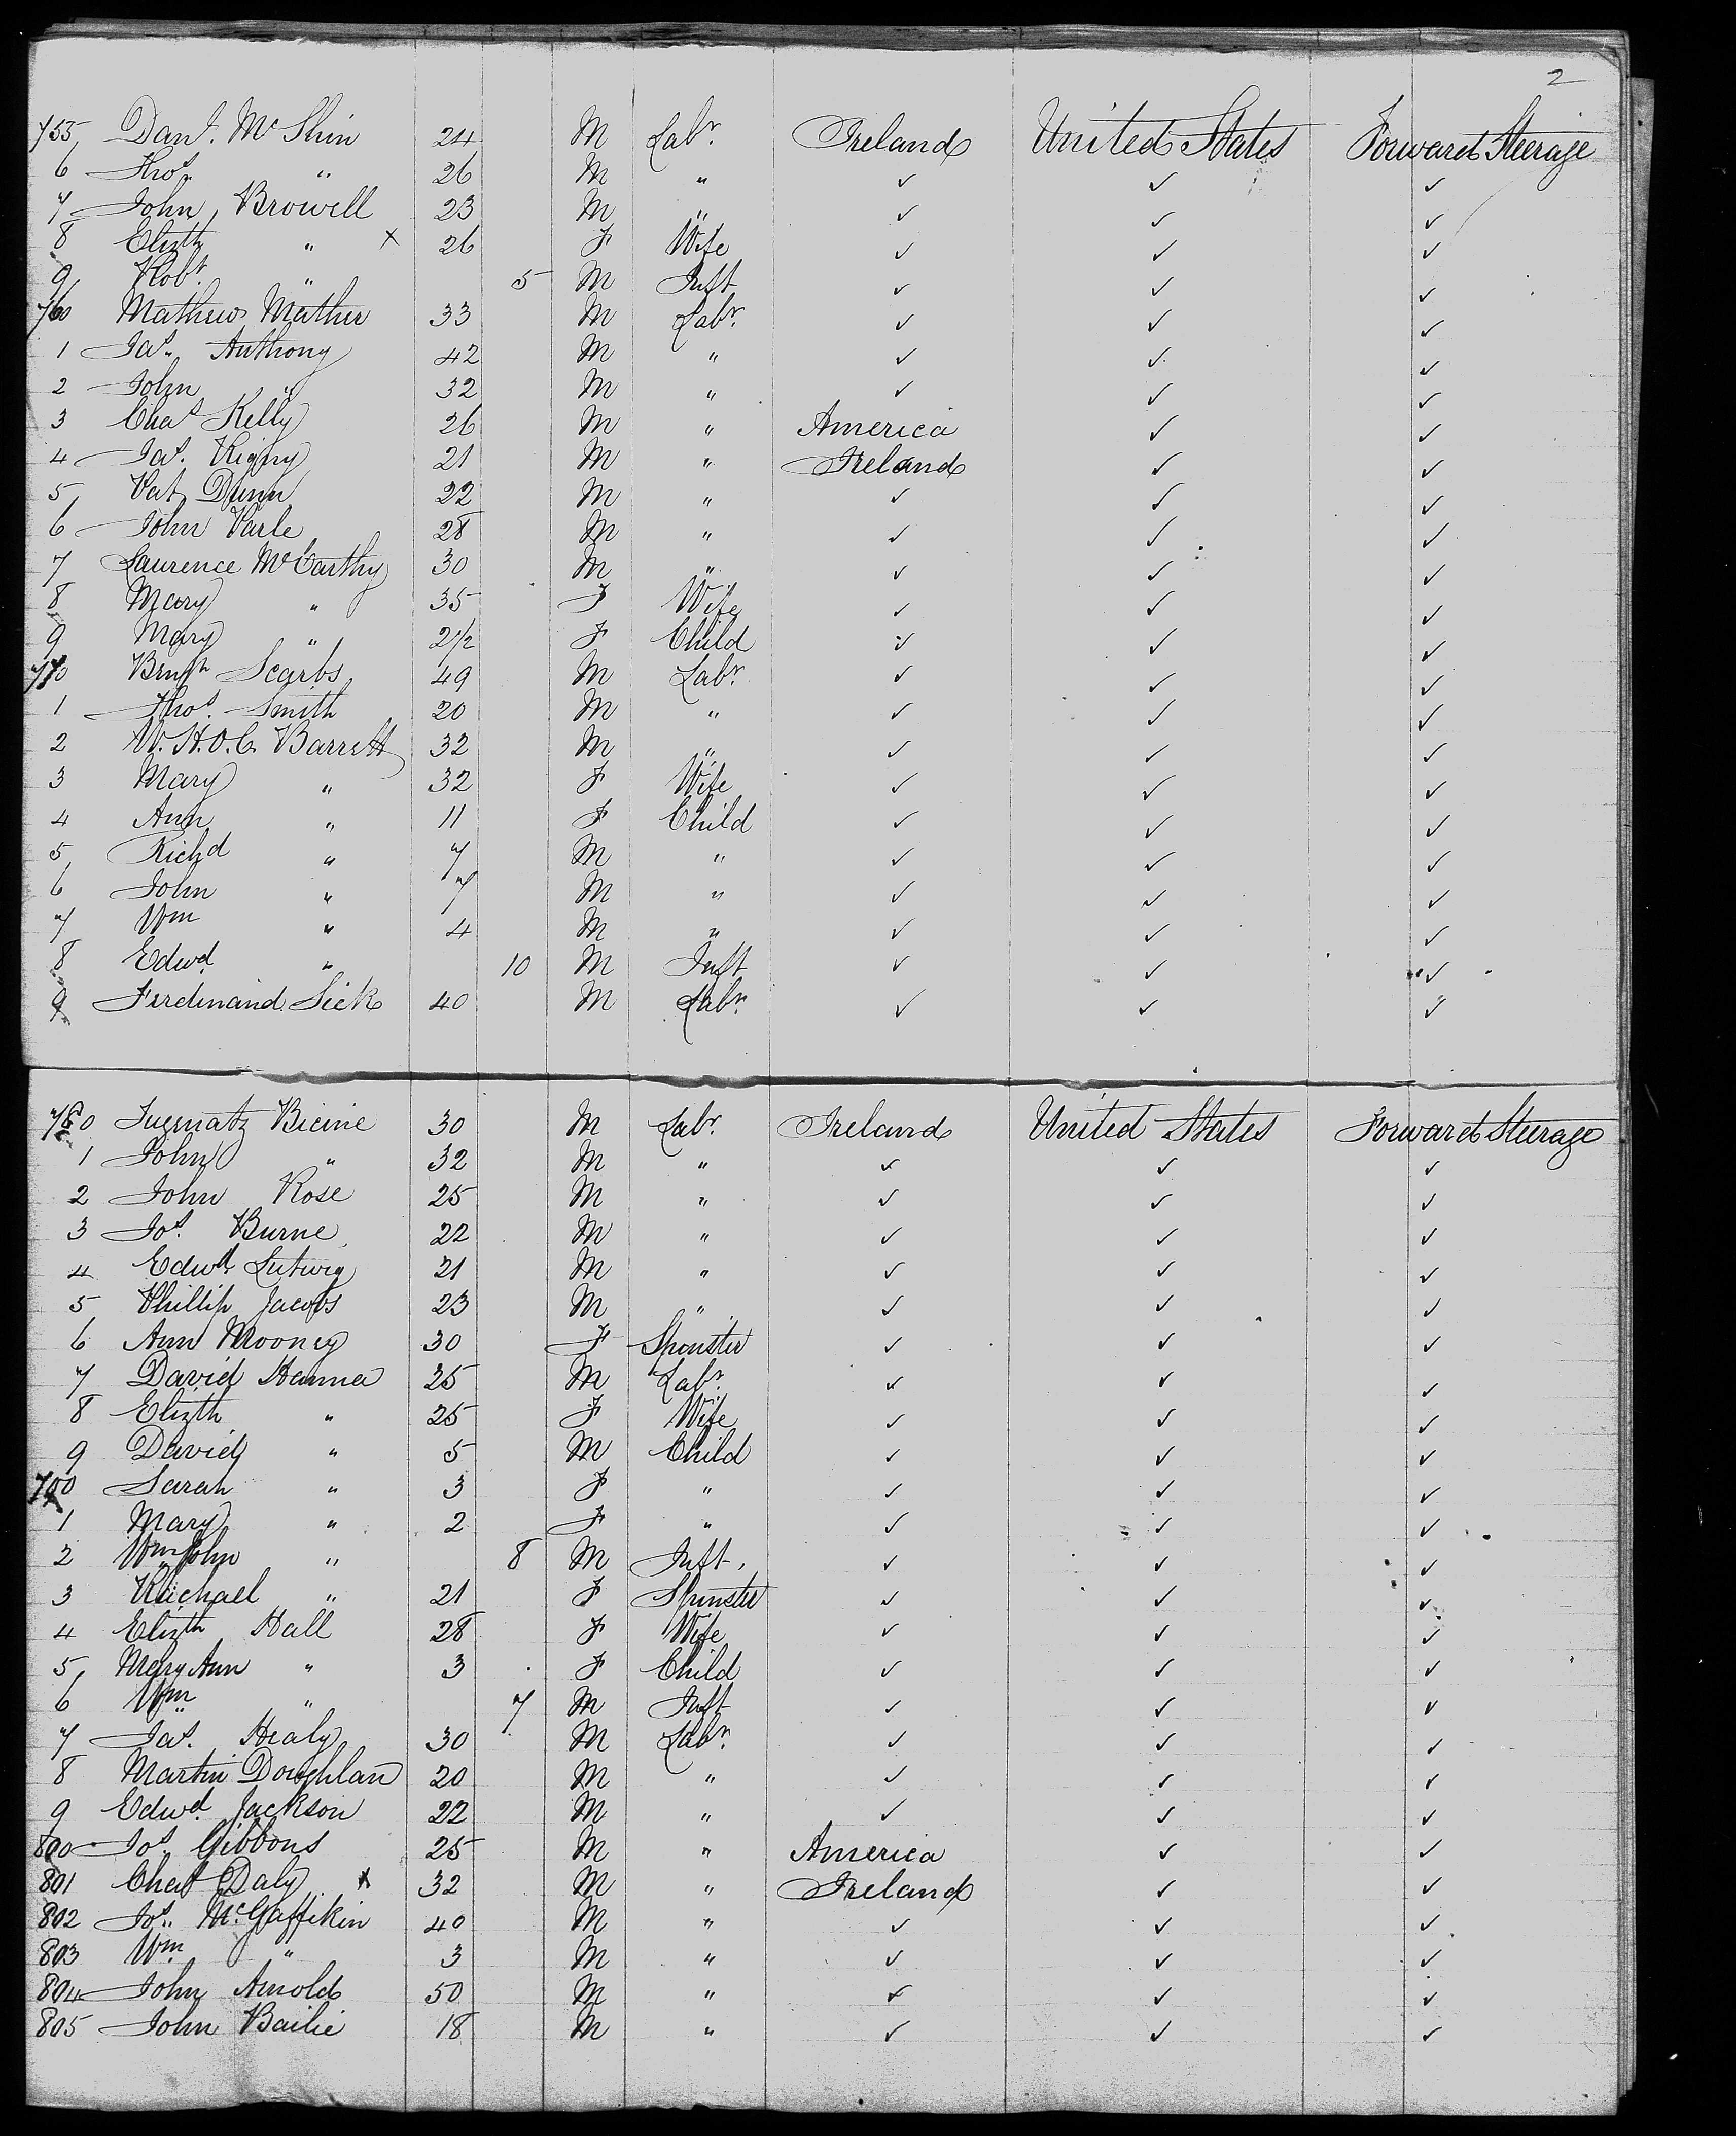 2
755 Danl. McShin 24 M Labr. Ireland United States Forward Steerage
6 Thos. " 26 M " ✓ ✓ ✓
7 John Browell 23 M " ✓ ✓ ✓
8 Elizth " x 26 F Wife ✓ ✓ ✓
9 Robt. " 5 M Inft ✓ ✓ ✓
760 Mathew Mather 33 M Labr. ✓ ✓ ✓
1 Jas. Anthony 42 M " ✓ ✓ ✓
2 John " 32 M " ✓ ✓ ✓
3 Chas Kelly 26 M " America ✓ ✓
4 Jas. Rigny 21 M " Ireland ✓ ✓
5 Pat Dunn 22 M " ✓ ✓ ✓
6 John Parle 28 M " ✓ ✓ ✓
7 Laurence McCarthy 30 M " ✓ ✓ ✓
8 Mary " 35 F Wife ✓ ✓ ✓
9 Mary " 2 1/2 F Child ✓ ✓ ✓
770 Scarbs 49 M Labr. ✓ ✓ ✓
1 Thos. Smith 20 M " ✓ ✓ ✓
2 W. H. O. C. Barrett 32 M " ✓ ✓ ✓
3 Mary " 32 F Wife ✓ ✓ ✓
4 Ann " 11 F Child ✓ ✓ ✓
5 Richd " 7 M " ✓ ✓ ✓
6 John " 7 M " ✓ ✓ ✓
7 Wm " 4 M " ✓ ✓ ✓
8 Edwd. " 10 M Inft ✓ ✓ ✓
9 Ferdinand Sick 40 M Labr. ✓ ✓ ✓
780 Bicine 30 M Labr. Ireland United States Forward Steerage
1 John " 32 M " ✓ ✓ ✓
2 John Rose 25 M " ✓ ✓ ✓
3 Jos. Burne 22 M " ✓ ✓ ✓
4 Edwd. Lutwig 21 M " ✓ ✓ ✓
5 Phillip Jacobs 23 M " ✓ ✓ ✓
6 Ann Mooney 30 F Spinster ✓ ✓ ✓
7 David Hanna 25 M Labr. ✓ ✓ ✓
8 Elizth " 25 F Wife ✓ ✓ ✓
9 David " 5 M Child ✓ ✓ ✓
790 Sarah " 3 F " ✓ ✓ ✓
1 Mary " 2 F " ✓ ✓ ✓
2 Wm John " 8 M Inft. ✓ ✓ ✓
3 Rachael " 21 F Spinster ✓ ✓ ✓
4 Elizth Hall 28 F Wife ✓ ✓ ✓
5 Mary Ann " 3 F Child ✓ ✓ ✓
6 Wm " 7 M Inft ✓ ✓ ✓
7 Jas. Healy 30 M Labr. ✓ ✓ ✓
8 Martin Doughlan 20 M " ✓ ✓ ✓
9 Edwd. Jackson 22 M " ✓ ✓ ✓
800 Jos. Gibbons 25 M " America ✓ ✓
801 Chas Daly x 32 M " Ireland ✓ ✓
802 Jos. McGaffikin 40 M " ✓ ✓ ✓
803 Wm " 3 M " ✓ ✓ ✓
804 John Arnold 50 M " ✓ ✓ ✓
805 John Bailie 18 M " ✓ ✓ ✓